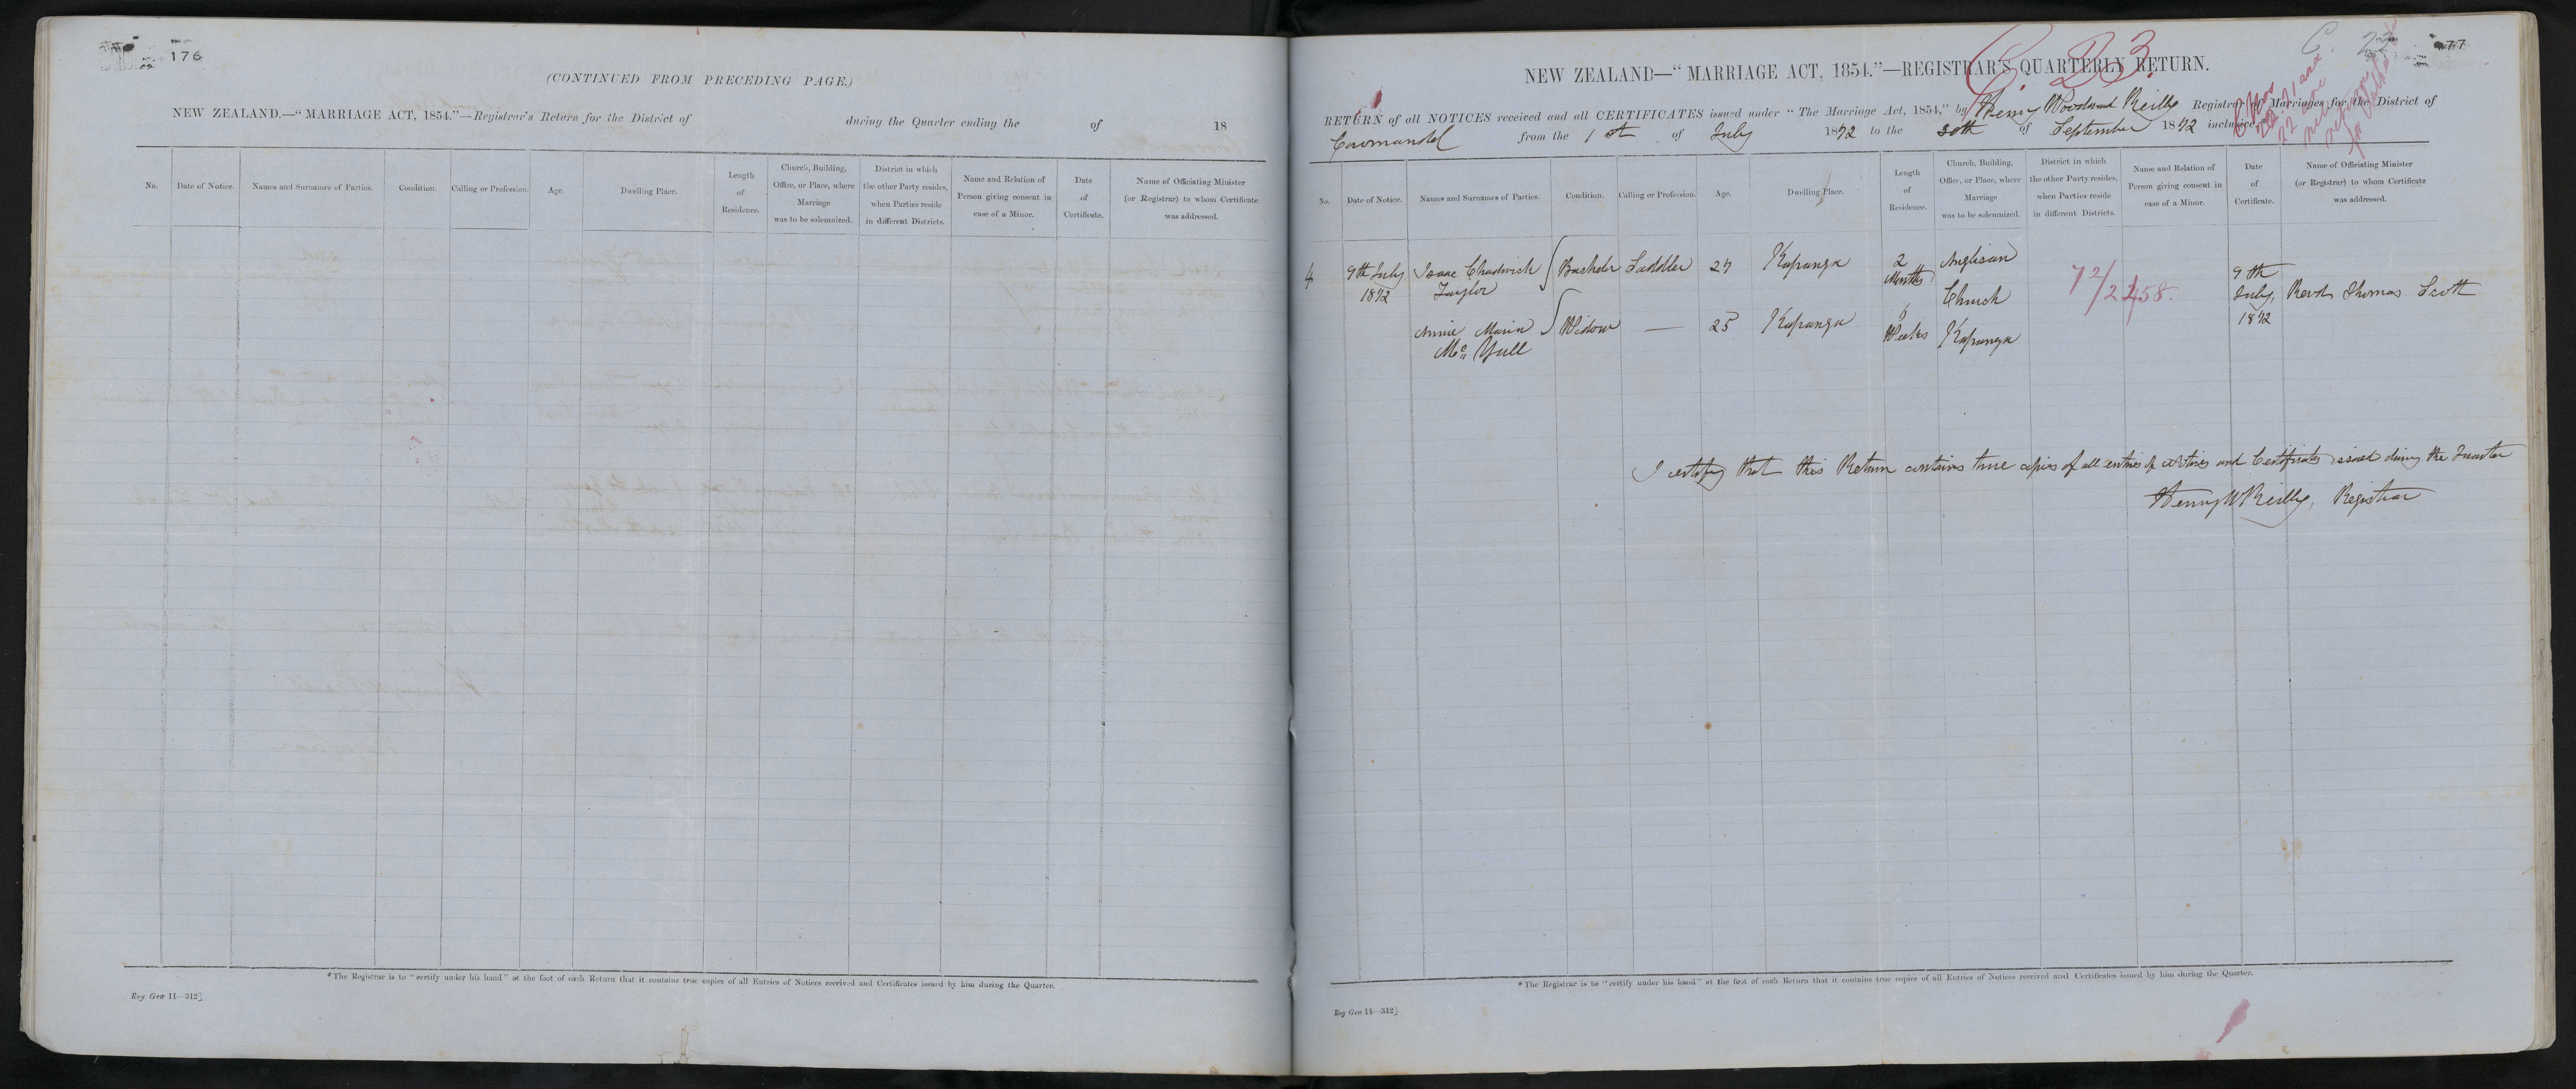 176
(CONTINUED FROM PRECEDING PAGE.)
NEW ZEALAND.—“MARRIAGE ACT, 1854.”—Registrar's Return for the District of during the Quarter ending the of 18
No. Date of Notice. Names and Surnames of Parties. Condition. Calling or Profession. Age. Dwelling Place. Length of Residence. Church, Building, Office, or Place, where Marriage was to be solemnized. District in which the other Party resides, when Parties reside in different Districts. Name and Relation of Person giving consent in case of a Minor. Date of Certificate. Name of Officiating Minister (or Registrar) to whom Certificate was addressed.
*The Registrar is to “certify under his hand” at the foot of each Return that it contains true copies of all Entries of Notices received and Certificates issued by him during the Quarter.
Reg Gen 11—312]
C. 22
77
C. 23
NEW ZEALAND—“MARRIAGE ACT, 1854.”—REGISTRAR'S QUARTERLY RETURN.
RETURN of all NOTICES received and all CERTIFICATES issued under “The Marriage Act, 1854,” by Henry Woodward Reilly Registrar of Marriages for the District of
Coromandel from the 1st of July 1872 to the 30th of September 1872 inclusive
No. Date of Notice. Names and Surnames of Parties. Condition. Calling or Profession. Age. Dwelling Place. Length of Residence. Church, Building, Office, or Place, where Marriage was to be solemnized. District in which the other Party resides, when Parties reside in different Districts. Name and Relation of Person giving consent in case of a Minor. Date of Certificate. Name of Officiating Minister (or Registrar) to whom Certificate was addressed.
4 9th July 1872 Isaac Chadwick Taylor Bachelor Saddler 27 Kapanga 2 Months Anglican Church 72/2158. 9th July, 1872 Revd Thomas Scott
Annie Maria Mc Yull Widow — 25 Kapanga 6 Weeks Kapanga
I certify that this Return contains true copies of all entries of Notices and Certificates issued during the Quarter
Henry W Reilly, Registrar
*The Registrar is to “certify under his hand” at the foot of each Return that it contains true copies of all Entries of Notices received and Certificates issued by him during the Quarter.
Reg Gen 11—312]